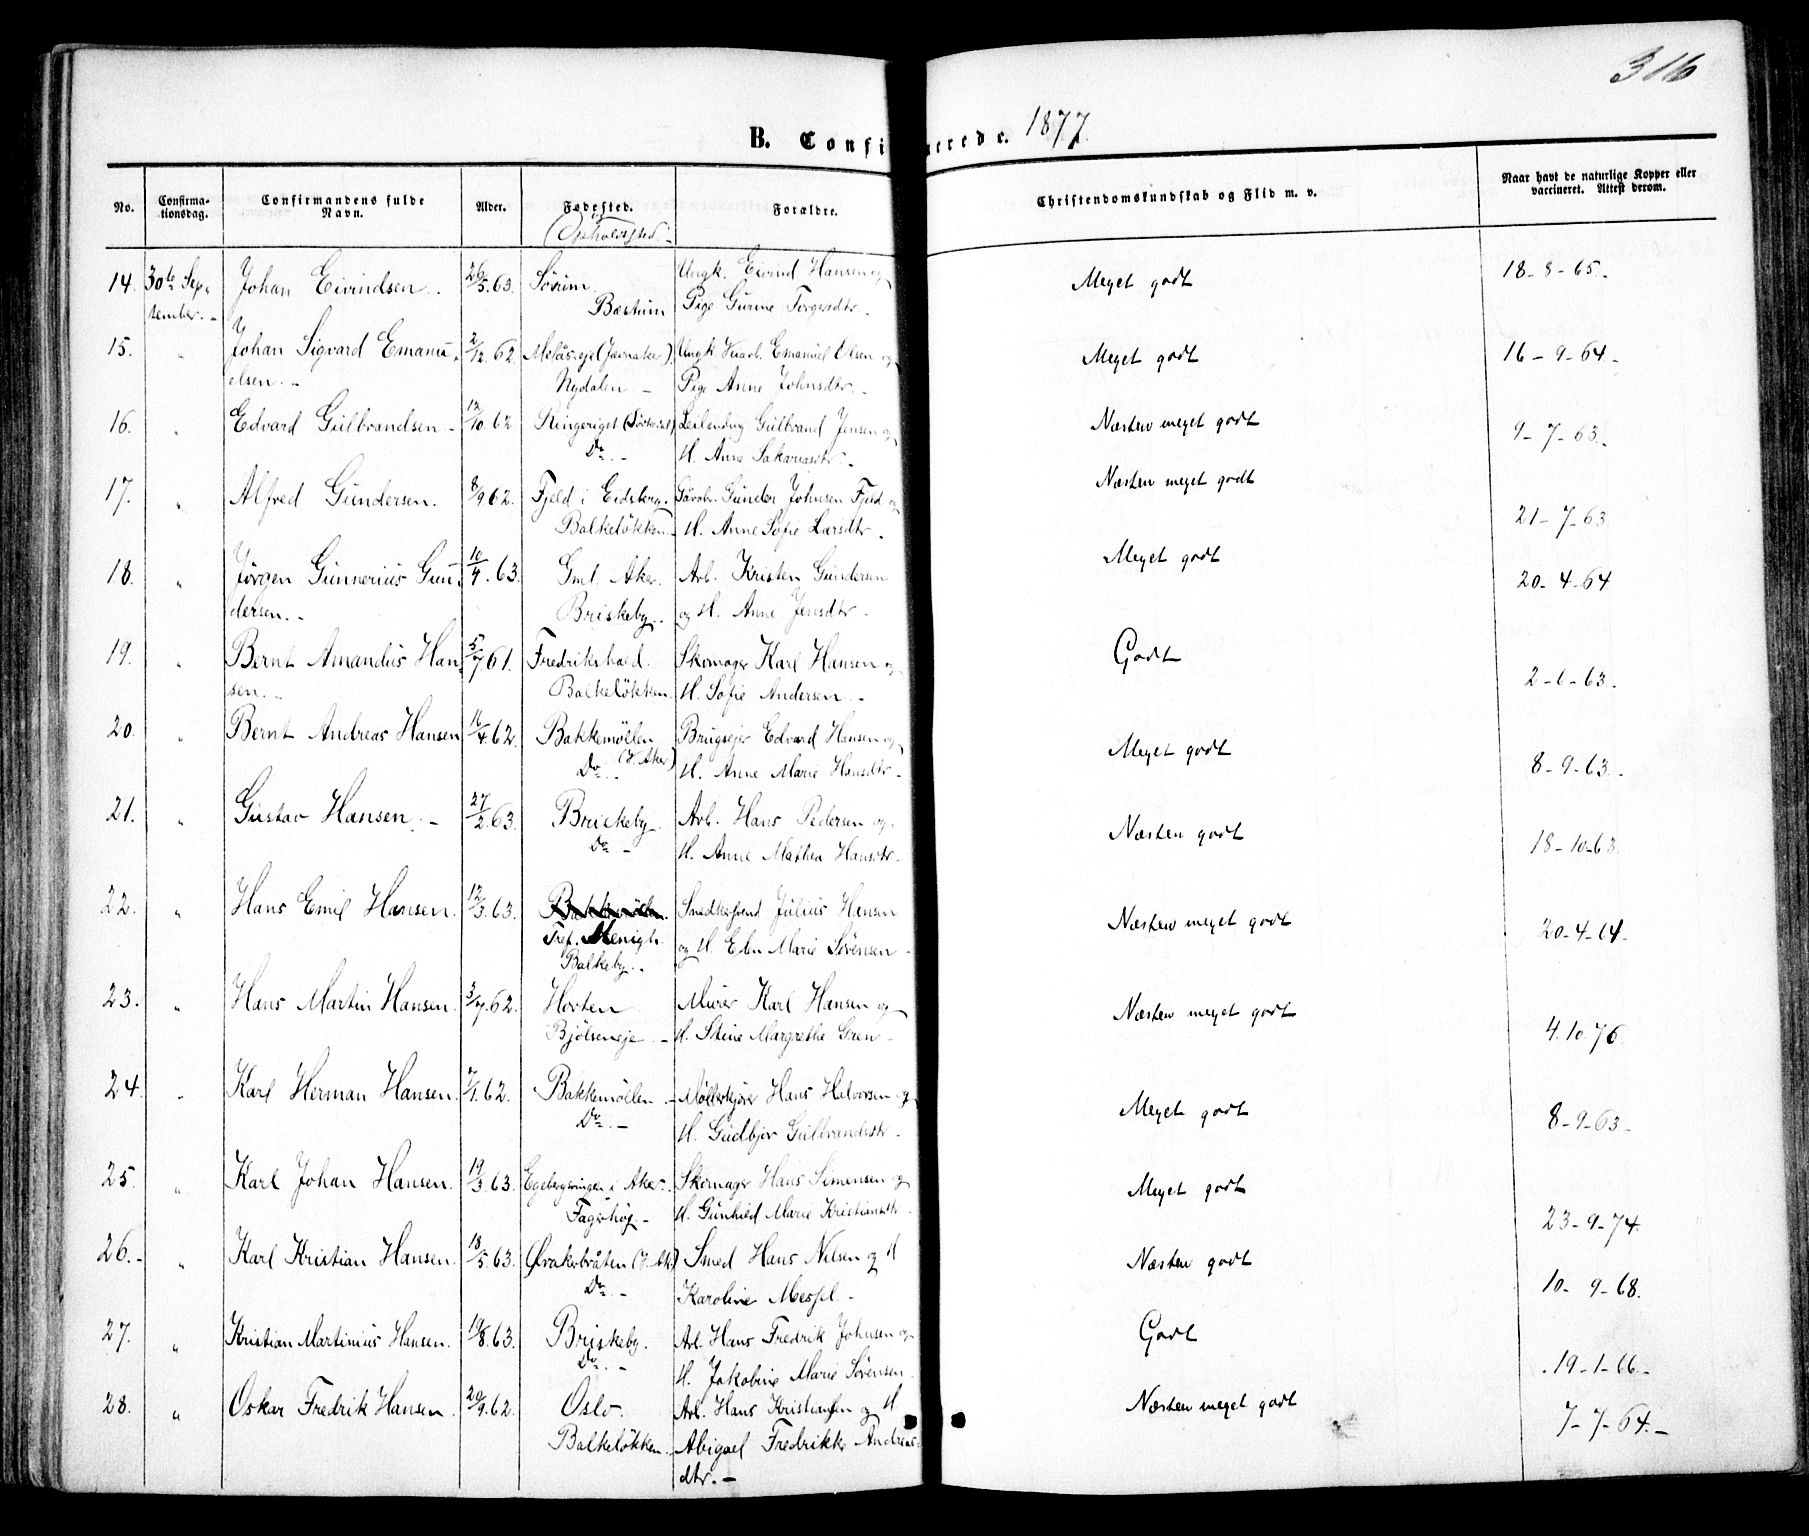 316
B. Confi erede. 1877.
No. Confirmationsdag. Confirmandens fulde Navn. Alder. Fødested. (Opholdssted.) Forældre. Christendomskundskab og Flid m. v. Naar havt de naturlige Kopper eller vaccineret. Attest derom.
14. 30te Sep- Johan Eivindsen. 26/5.63. Sörum. Ungk. Eivind Hansen og Meget godt 18-8-65.
tember. Bærum Pige Gurine Torgersdtr.
15. " Johan Sigvard Emanu- 2/12.62. (Jævnaker) Ungk. Emanuel Olsen og Meget godt 16-9-64.
elsen. Nydalen Pige Anne Johnsdtr.
16. " Edvard Gulbrandsen 12/10.62 Ringeriget Leilending Gulbrand Jensen og Næsten meget godt 9-7-63.
Do. H. Anne Sakariasdtr.
17. " Alfred Gundersen. 8/9.62. Fjeld i Eidsberg. Gunder Johnsen Fjeld og Næsten meget godt 21-7-63
Balkelökken H. Anne Sofie Larsdtr.
18. " Jörgen Gunnerius Gun- 10/4.63. Gml. Aker. Arb. Kristen Gundersen Meget godt 20-4-64
dersen. Briskeby. og H. Anne Jensdtr
19. " Bernt Amandus Han- 5/7.61. Fredrikshald. Skomager Karl Hansen og Godt 2-6-63.
sen. Balkelökken H. Sofie Andersen
20. " Bernt Andreas Hansen 16/4.62. Bakkemöllen Brugseier Edvard Hansen og Meget godt 8-9-63.
(V. Aker) Do. H. Anne Marie Hansdtr
21. " Gustav Hansen. 27/2.63. Briskeby. Arb. Hans Pedersen og Næsten godt 18-10-63.
Do. H. Anne Mathea Hansdtr
22. " Hans Emil Hansen. 12/3.63. Bakkemöllen. Smedkesvend Julius Hansen Næsten meget godt 20-4-64.
Tref. Menigh. og H. Marie Sörensen
Balkeby.
23. " Hans Martin Hansen. 3/7.62. Horten Murer Karl Hansen og Næsten meget godt 4.10.76.
Bjölseneje H. Stine Margrethe Gren
24. " Karl Herman Hansen. 2/1.62. Bakkemöllen Möllerkjörer Hans Halvorsen og Meget godt 8-9-63.
Do. H. Gudbjör Gulbrandsdtr
25. " Karl Johan Hansen. 19/3.63. i Aker. Skomager Hans Simensen og Meget godt 23-9-74
Fagerhög H. Gunhild Marie Kristiansdtr
26. " Karl Kristian Hansen. 18/5.63. Øvrakerbråten (V. Ak.) Smed Hans Nilsen og H Næsten godt 10-9-68.
Do. Karoline Messel
27. " Kristian Martinius Hansen. 19/8.63. Briskeby. Arb. Hans Fredrik Johnsen og Godt 19-1-66
Do. H. Jakobine Marie Sörensen
28. " Oskar Fredrik Hansen. 20/9.62. Oslo. Arb. Hans Kristiansen og H. Næsten meget godt 7-7-64.
Balkelökken. Abigael Fredrikke Andreas-
dtr.